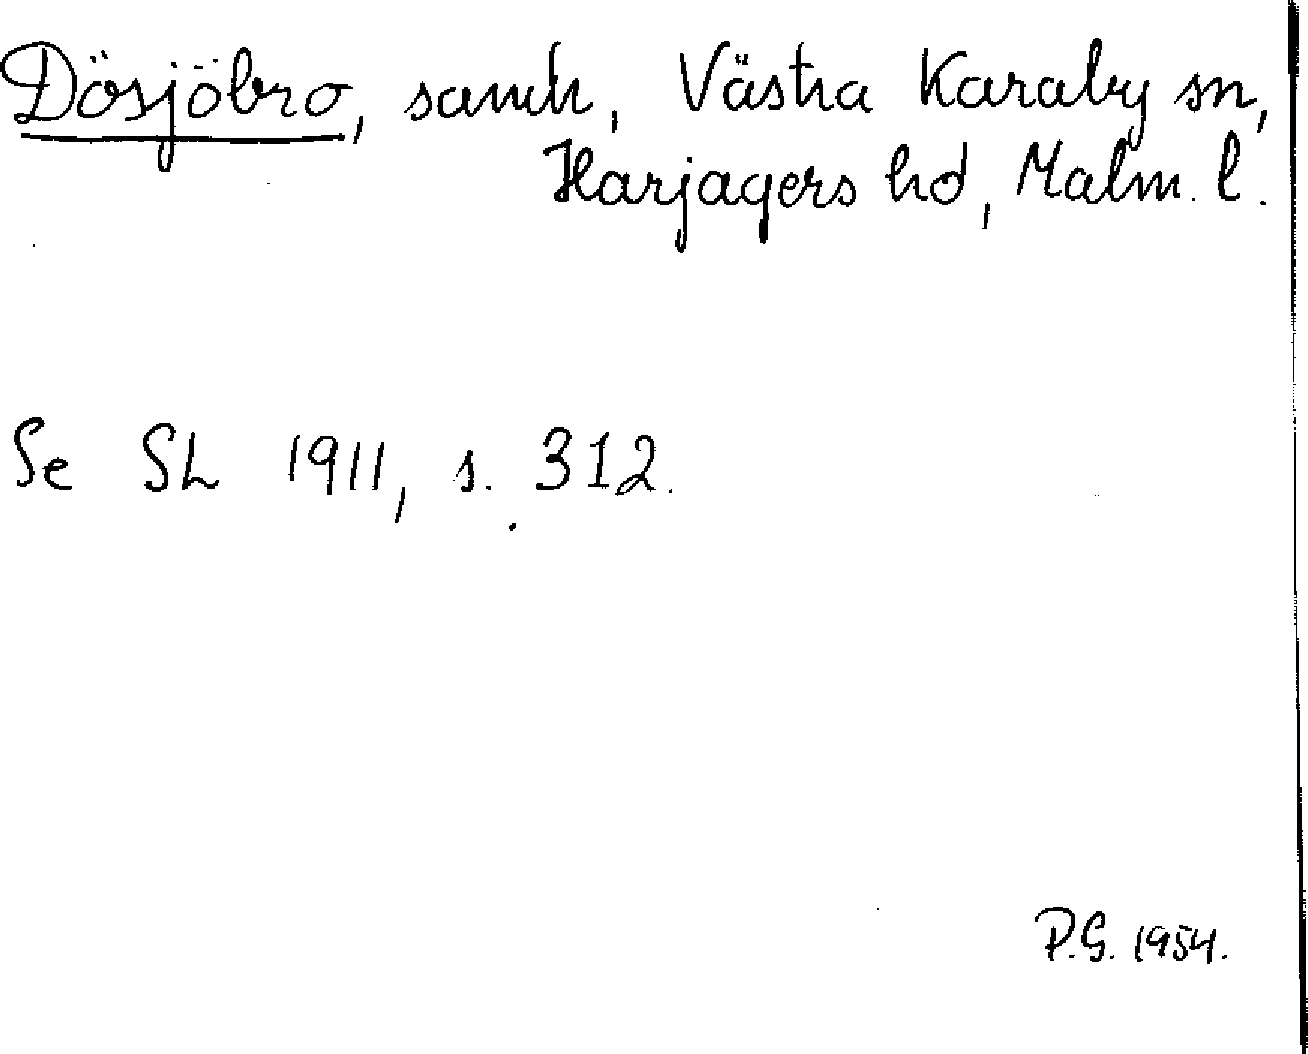 Dösjöbro, samh, Västra Karaby sn,
Harjagers hd, Malm. l.
Se Sh 1911, s. 312.
P.G. 1954.